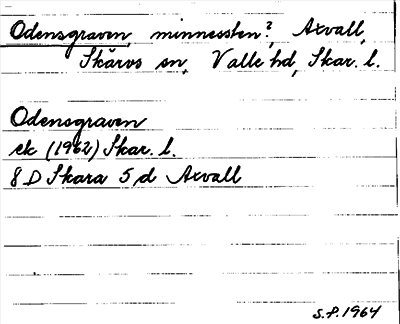 Odensgraven, minnessten?, Axvall,
Skärvs sn, Valle hd, Skar. l.
Odensgraven
ek (1962) Skar. l.
8 D Skara 5 d Axvall
S.F. 1964